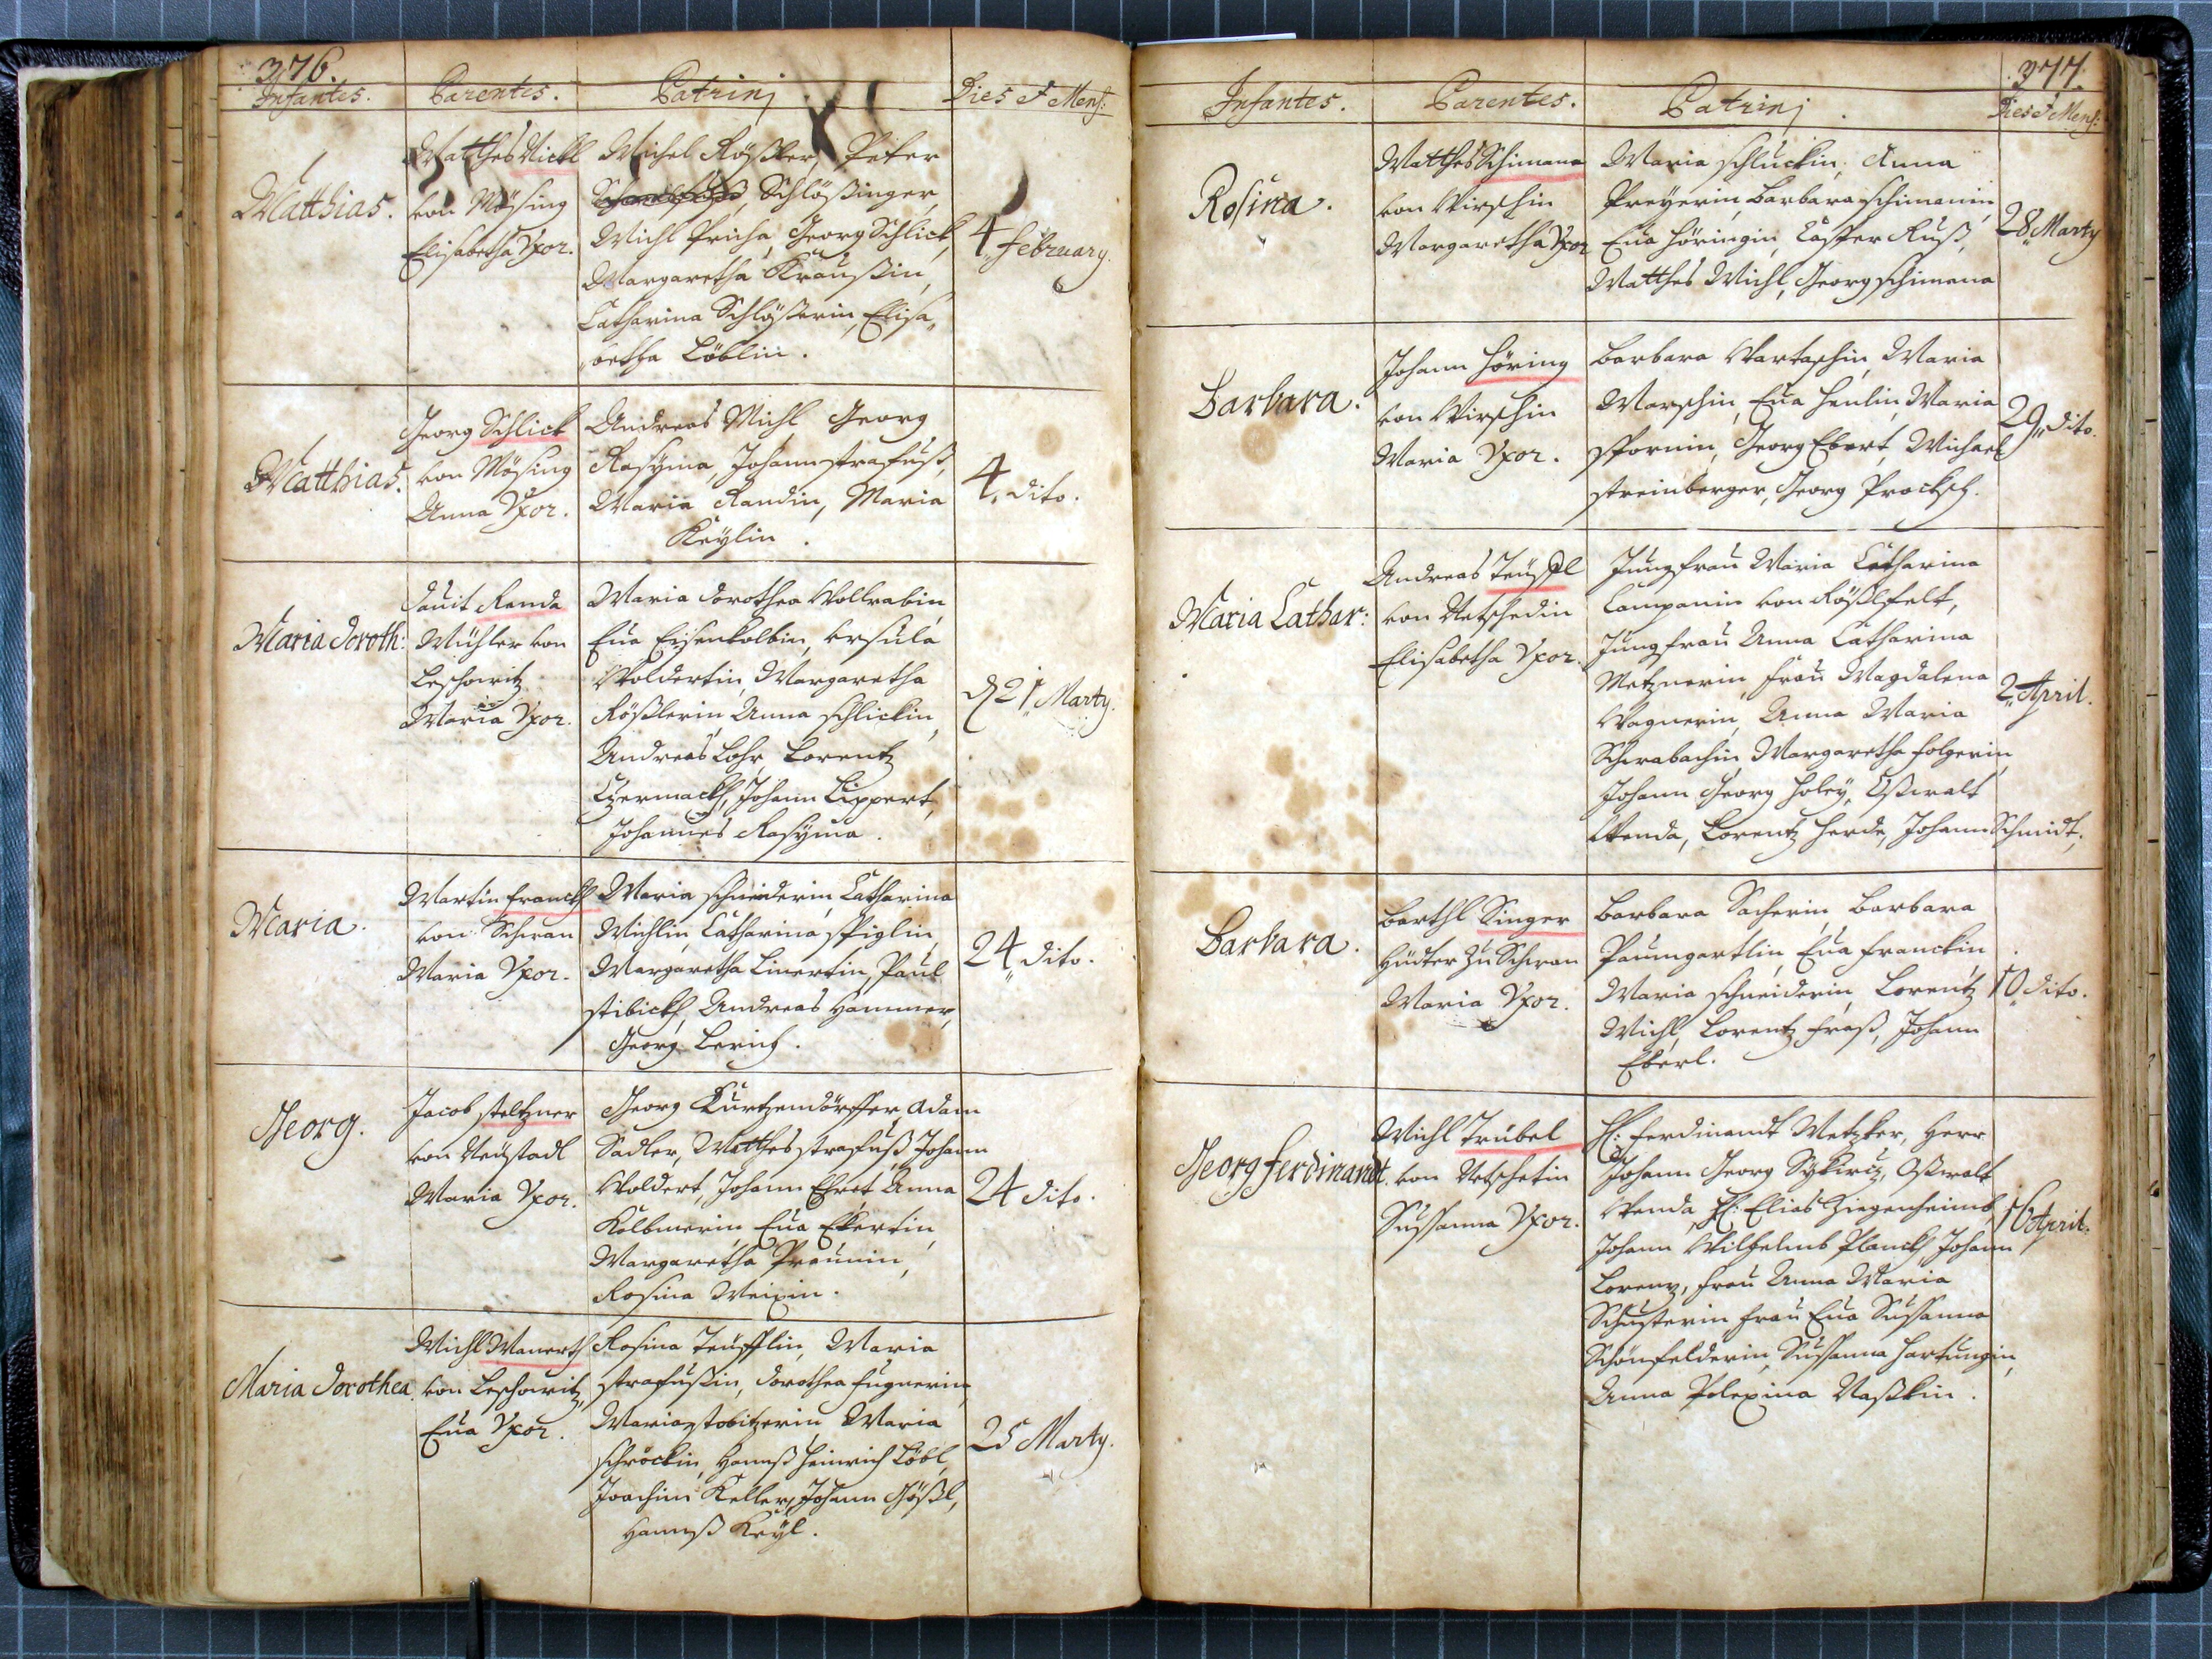 376.
Infantes. Parentes. Patrinj Dies et Mens:
Matthias.
Matthes Nickl
von Mösing
Elisabetha Vxor.
Michel Rößler, Peter
Schlößinger,
Michl Pricha, Georg Schlick,
Margaretha Kraußin,
Catharina Schlößerin, Elisa„
„betha Löblin.
4„ february.
Matthias.
Georg Schlick
von Mösing
Anna Vxor.
Andreas Michl Georg
Rasÿma, Johann straßfuß,
Maria Randin, Maria
Keÿlin.
4„ dito.
Maria Doroth:
Dauit Randa
Mühler von
Leschowitz
Maria Vxor.
Maria Dorothea Wollrabin
Eua Eÿsenkolbin, Vrsula
Woldertin, Margaretha
Rößlerin Anna schlickin,
Andreas Lohr, Lorentz
Czermackh, Johann Lippert,
Johannes Rasÿma.
d 21„ Marty.
Maria.
Martin franckh
von Schwan
Maria Vxor.
Maria schneiderin, Catharina
Michlin, Catharina spiglin,
Margaretha Linertin, Paul
stibickh, Andreas Hammer,
Georg Lerich.
24„ dito.
Georg.
Jacob steltzner
von Neüstadl
Maria Vxor.
Georg Kürtzendörffer, Adam
Sadler, Matthes straßfuß, Johann
Woldert, Johann Ehret, Anna
Kolbmerin, Eua Ekertin,
Margaretha Praunin,
Rosina Weixin.
24 dito.
Maria Dorothea.
Michl Manerth
von Leschowitz,
Eua Vxor.
Rosina Teüfflin, Maria
straßfußin, Dorothea fügnerin,
Maria stobitzerin Maria
schröckin, Hannß Heinrich Löbl,
Joachim Keller, Johann Gößl,
Hannß Keÿl.
25 Marty.
377.
Infantes. Parentes. Patrinj. Dies et Mens:
Rosina.
Matthes Schimana
von Wirschin
Margaretha Vxor
Maria schluckin, Anna
Preÿerin, Barbara schimanin,
Eua Höringin, Casper Ruß,
Matthes Michl, Georg schimana
28„ Marty
Barbara.
Johann Höring
von Wirschin
Maria Vxor.
Barbara Wartaschin, Maria
Marschin, Eua Henlin, Maria
spornin, Georg Ebert, Michael
streinberger, Georg Procksch.
29„ dito.
Maria Cathar:
Andreas Teüffl
von Netschedin
Elisabetha Vxor.
Jungfrau Maria Catharina
Campanin von Rößlfelt,
Jungfrau Anna Catharina
Metznerin, frau Magdalena
Wagnerin, Anna Maria
Schwabachin Margaretha Folgerin,
Johann Georg Holeÿ, Oßwalt
Wenda, Lorentz Herde, Johann Schmidt,
2„ April.
Barbara.
Barthl Singer
Hüdter zu Schwan
Maria Vxor.
Barbara Sacherin, Barbara
Paumgartlin, Eua franckin
Maria schneiderin, Lorentz
Michl, Lorentz fraß, Johann
Eberl.
10„ dito.
Georg ferdinandt.
Michl Trübel
von Netschetin
Sussanna Vxor.
H: ferdinandt Metzker, Herr
Johann Georg Sÿkirtz, Oßwalt
Wenda, H: Elias Ziegenheimb,
Johann Wilhelmb Planckh, Johann
Lorenz, frau Anna Maria
Schusterin frau Eua Sussanna
Schönfelderin, Sussanna Hartungin,
Anna Polexina Naßkin.
16 April.